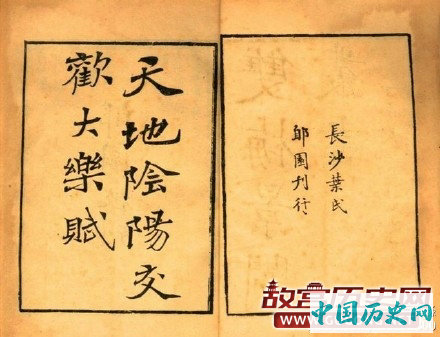 長沙葉氏
郋園刊行
天地陰陽交
歡大樂賦
故宫历史网
中国历史网